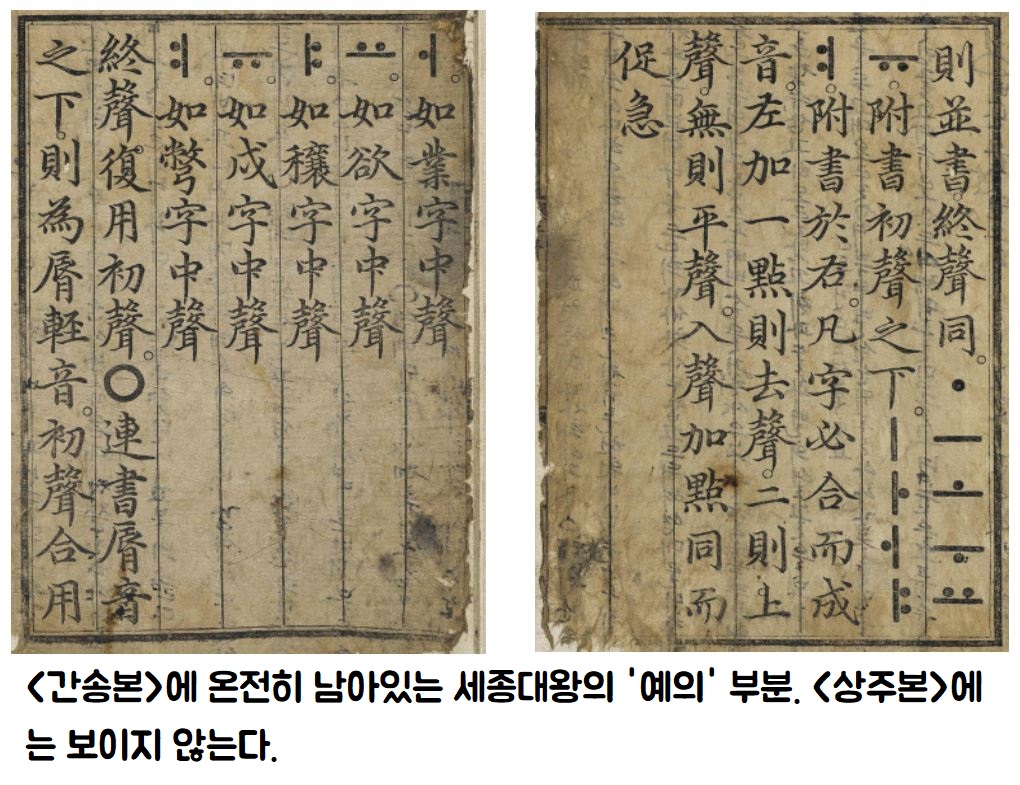 ㅓ。如業字中聲
ㅛ。如欲字中聲
ㅑ。如穰字中聲
ㅠ。如戌字中聲
ㅕ。如彆字中聲
終聲復用初聲。○連書脣音
之下。則為脣輕音。初聲合用
則並書。終聲同。ㆍㅡㅗㅜㅛ
ㅠ。附書初聲之下。ㅣㅏㅓㅑ
ㅕ。附書於右。凡字必合而成
音。左加一點則去聲。二則上
聲。無則平聲。入聲加點同而
促急
<간송본>에 온전히 남아있는 세종대왕의 '예의' 부분. <상주본>에
는 보이지 않는다.